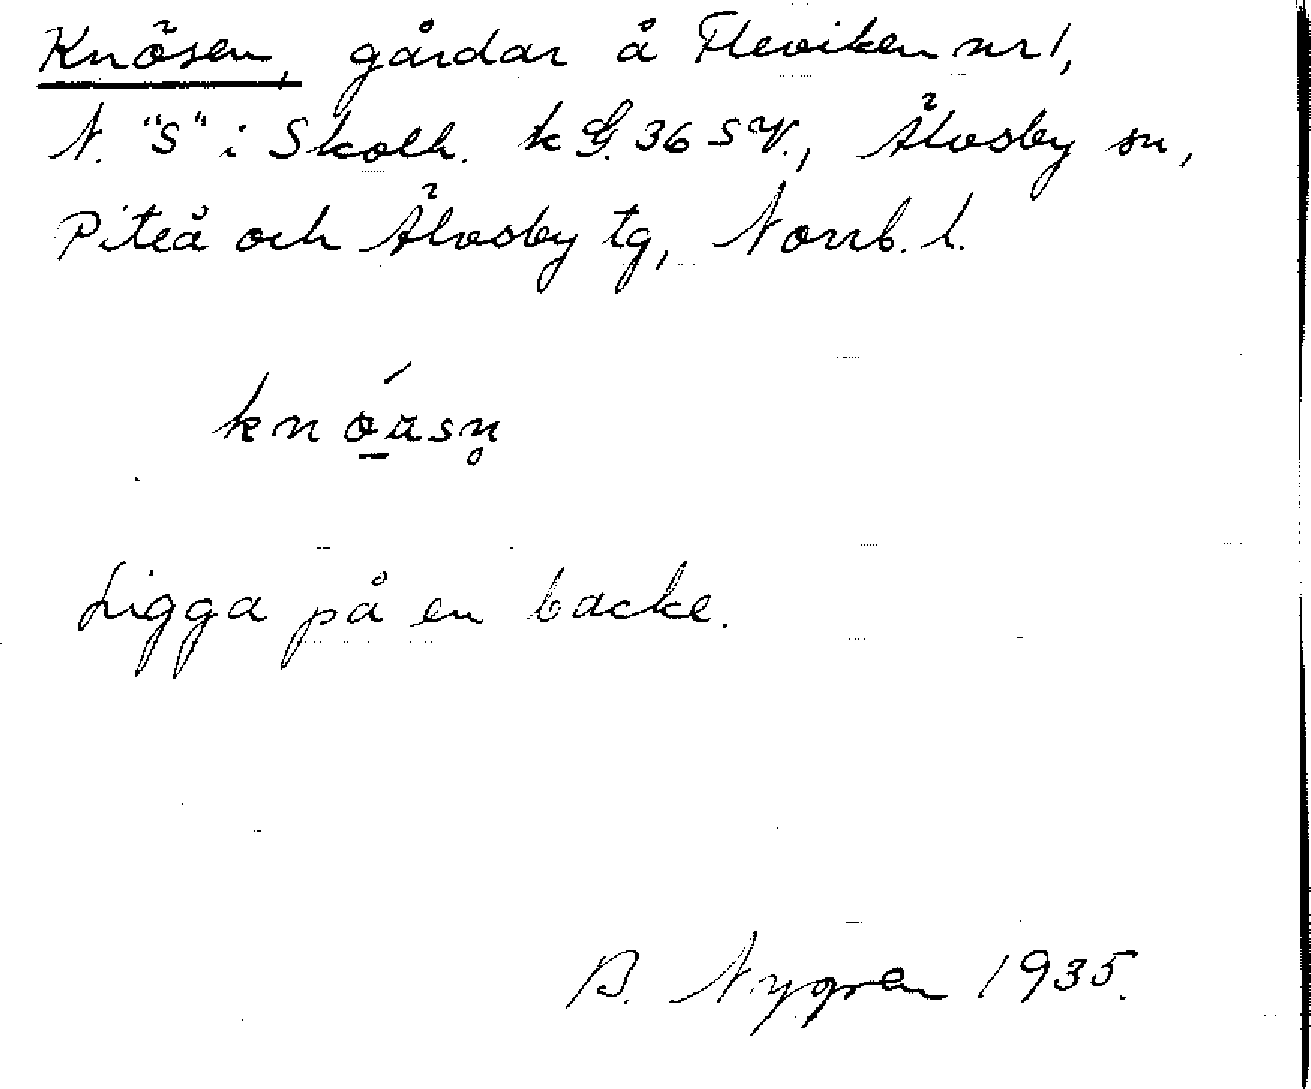 Knösen, gårdar å Fleviken nr 1,
N. "S" i Skolh. k G. 36 SV., Älvsby sn,
Piteå och Älvsby tg, Norrb. l.
knöäsn̥
Ligga på en backe.
B. Nygren 1935.